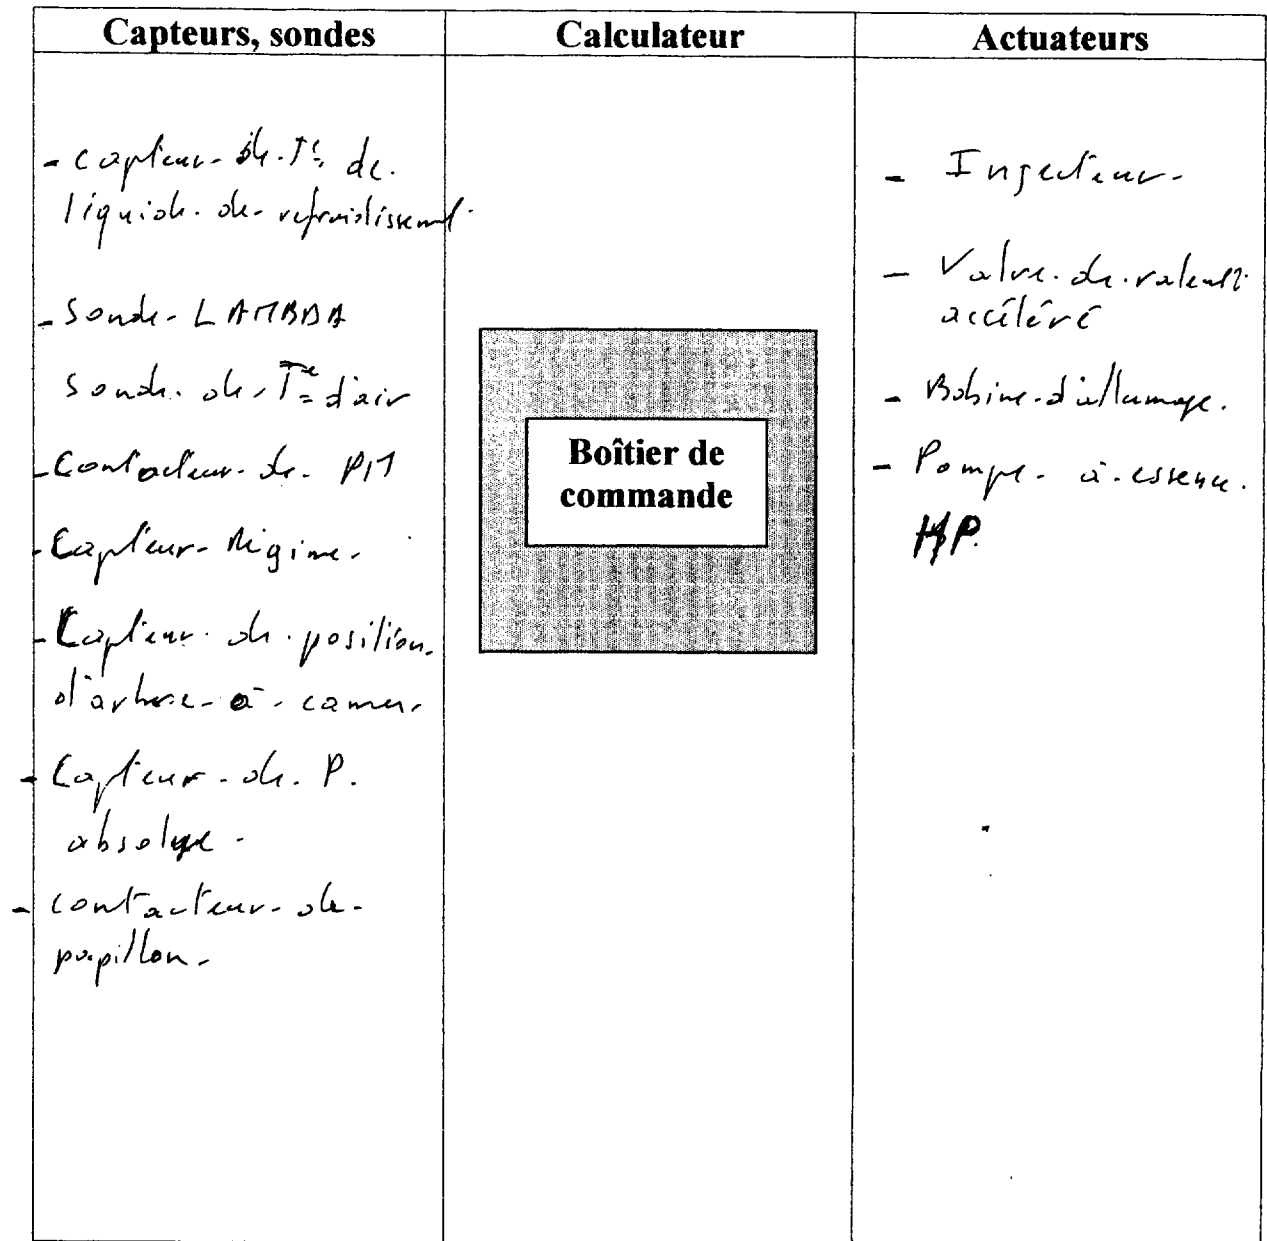 Capteurs, sondes
Calculateur
Actuateurs
- Capteur de T° de
liquide de refroidissement
- Sonde LAMBDA
Sonde de T° d'air
- Contacteur de PM
- Capteur Régime
- Capteur de position
d'arbre à cames
- Capteur de P.
absolue
- contacteur de
papillon
Boîtier de
commande
- Injecteur
- Valve de ralenti
accéléré
- Bobine d'allumage.
- Pompe à essence.
HP.